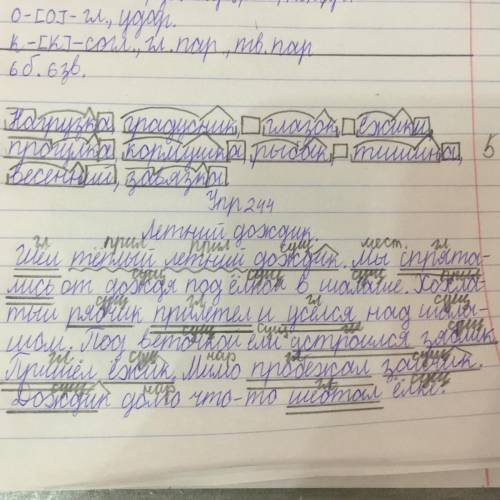 о-[о]-гл., удар.
к-[к]-согл., гл. пар., тв. пар
6б. 6зв.
Нагрузка, градусник, глазок, ёжики,
прогулка, кормушка, рыбак, тишина, 5
весенний, завязка.
Упр 244
Летний дождик
гл прил прил сущ мест. гл
Шёл тёплый летний дождик. Мы спрята-
сущ сущ сущ
лись от дождя под ёлкой в шалаше. Хохла-
сущ гл гл сущ
тый рябчик прилетел и уселся над шала-
сущ сущ гл сущ
шом. Под веточкой ели устроился зяблик.
гл сущ нар гл сущ
Пришёл ёжик. Мимо пробежал зайчик.
сущ нар гл сущ
Дождик долго что-то шептал ёлке.